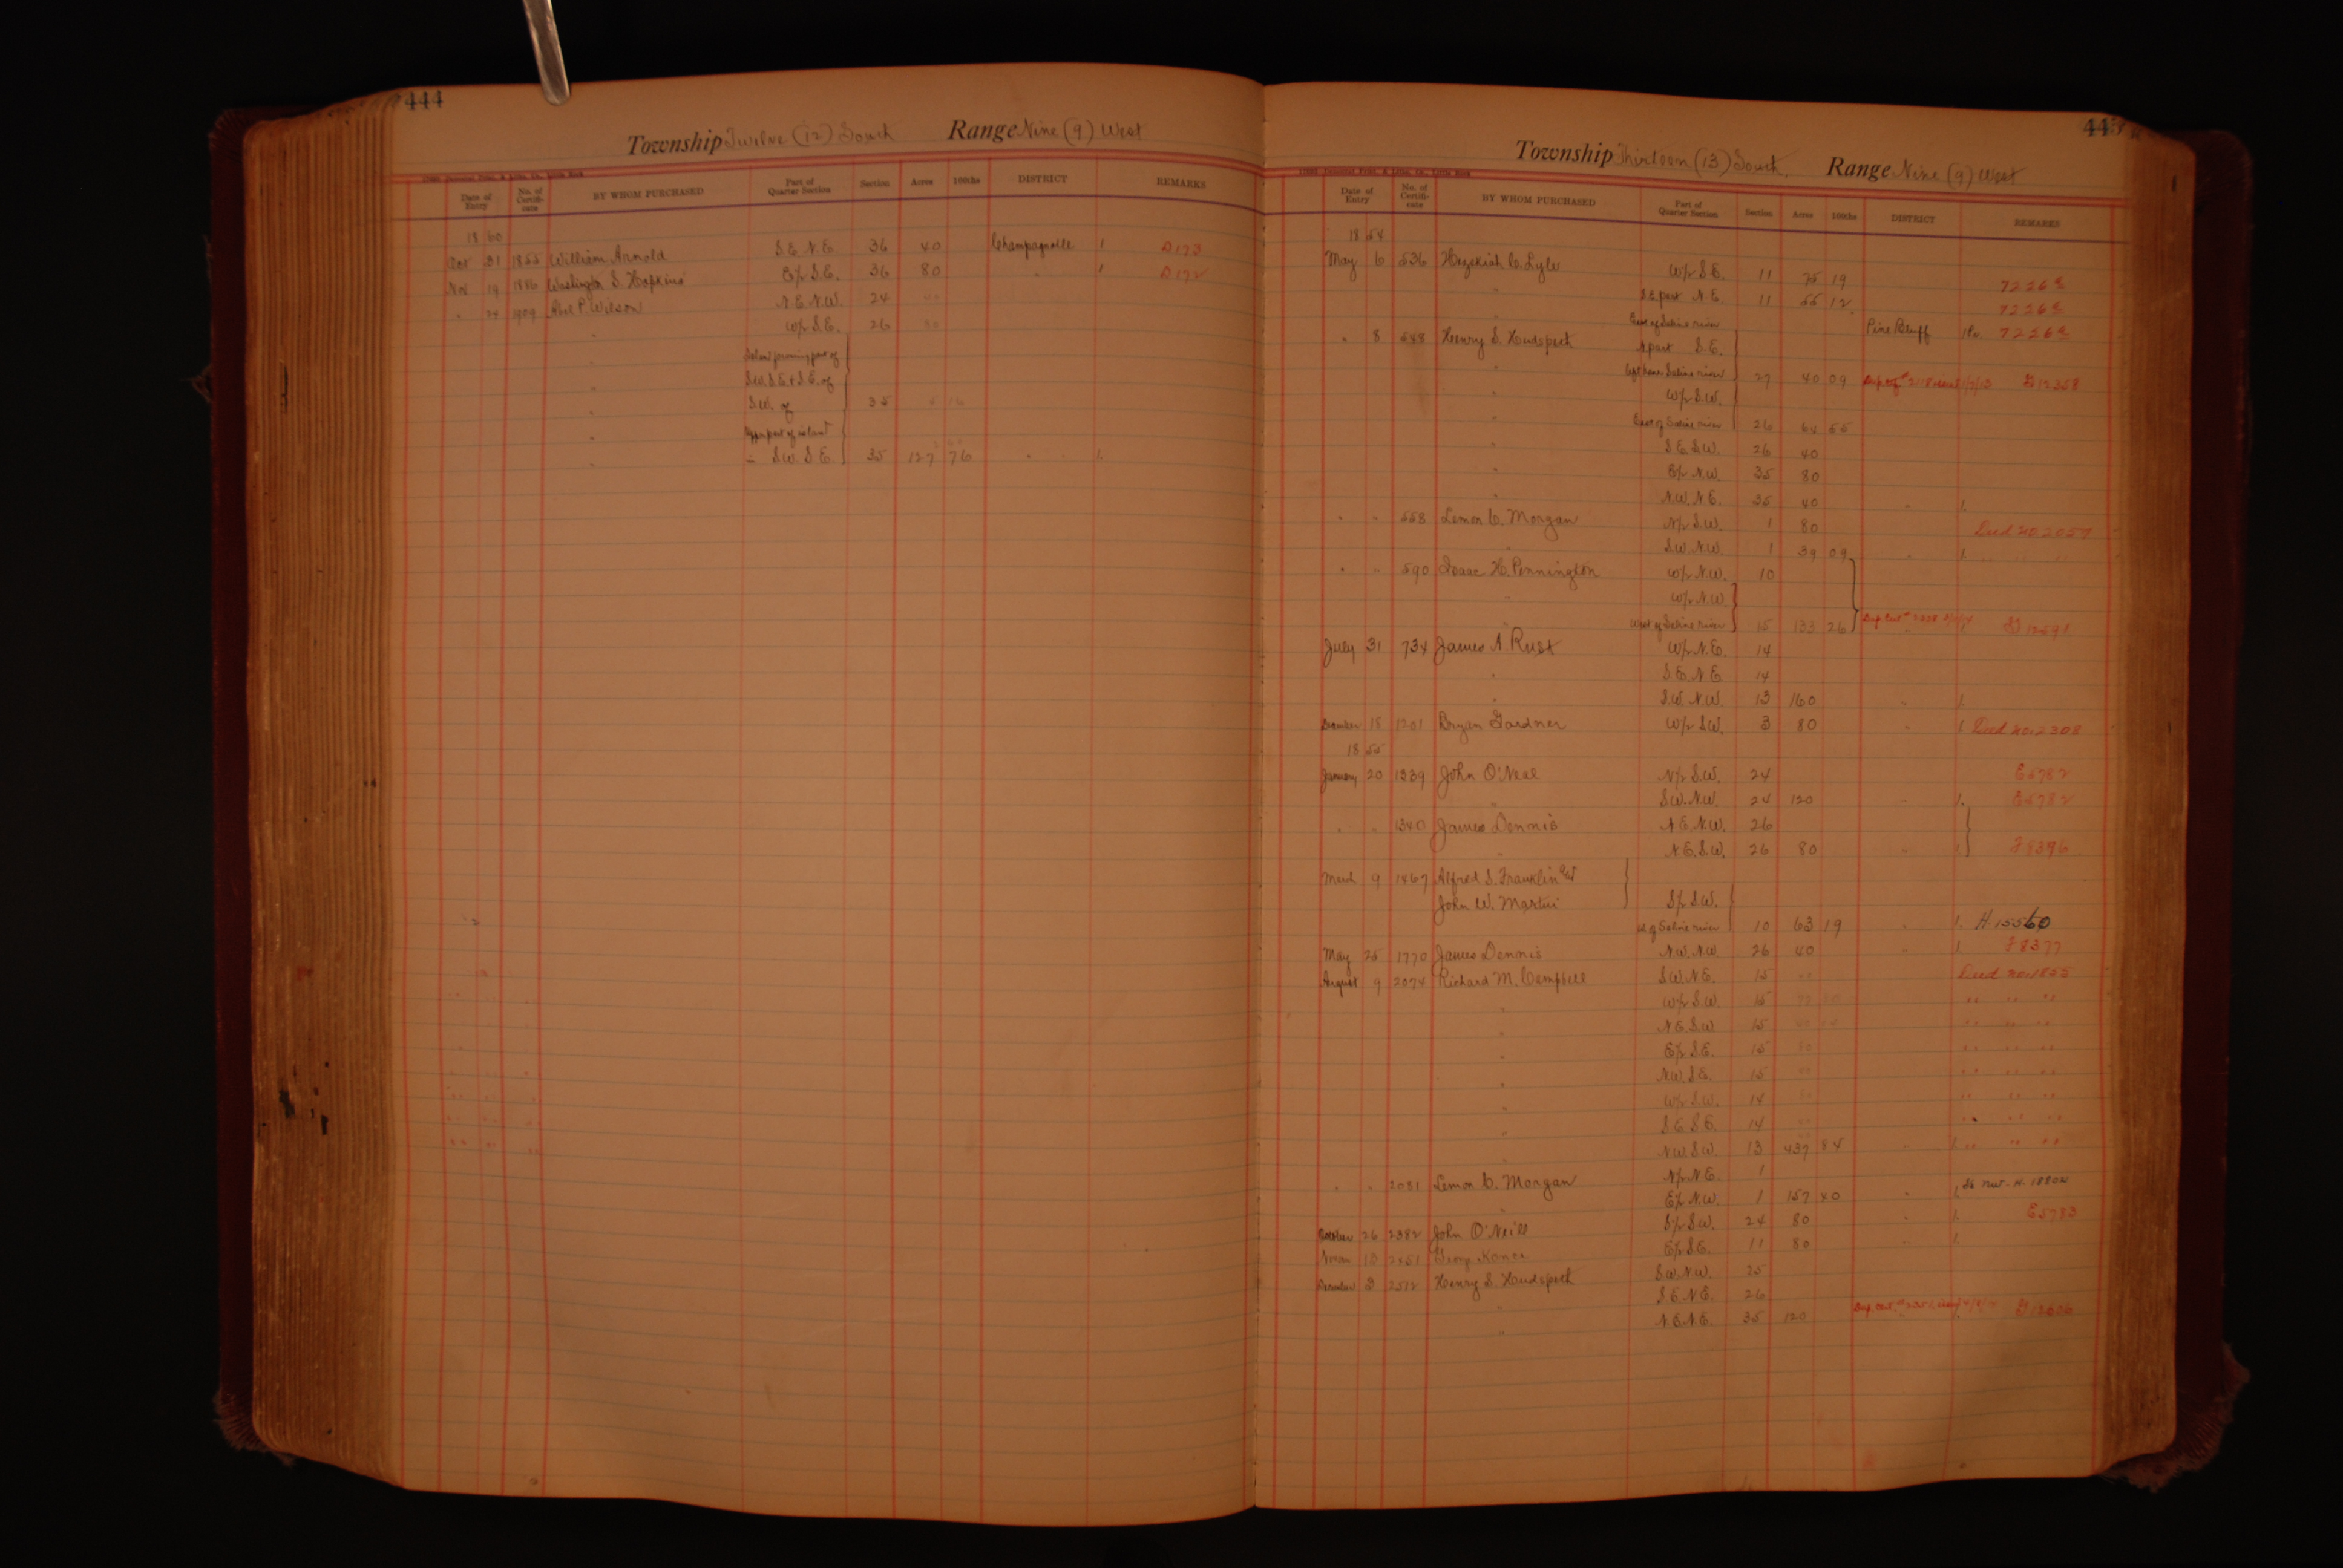 444
Township Twelve (12) South Range Nine (9) West
Date of Entry No. of Certifi-cate BY WHOM PURCHASED Part of Quarter Section Section Acres 100ths DISTRICT REMARKS
1860
Oct 31 1855 William Arnold S.E. N.E. 36 40 Champagnolle 1 D173
Nov 19 1886 Washington S. Hopkins E/2 S.E. 36 80 " 1 D172
" 24 1909 Abel P. Wilson N.E. N.W. 24 40
" W/2 S.E. 26 80
" Island forming part of
" S.W. S.E. & S.E. of
" S.W. of 35
" Upper part of island
" S.W. S.E. 35 127 76 " " 1.
Township Thirteen (13) South, Range Nine (9) West
Date of Entry No. of Certifi-cate BY WHOM PURCHASED Part of Quarter Section Section Acres 100ths DISTRICT REMARKS
1854
May 6 536 Hezekiah C. Lyle W/2 S.E. 11 75 19 72262
" S.E. part N.E. 11 55 12. 72262
East of Saline river Pine Bluff 72262
" 8 548 Henry S. Hudspeth N part S.E.
" left bank Saline river 27 40 09 G12358
" W/2 S.W.
" East of Saline river 26 64 55
" S.E. S.W. 26 40
" E/2 N.W. 35 80
" N.W. N.E. 35 40 " 1.
" " 558 Lemon C. Morgan N/2 S.W. 1 80 Deed no 2057
" S.W. N.W. 1 39 09 " 1. " "
" " 590 Isaac H. Pennington W/2 N.W. 10
" W/2 N.W.
" West of Saline river 15 133 26
July 31 734 James A. Rust W/2 N.E. 14
" S.E. N.E. 14
" S.W. N.W. 13 160 " 1.
December 18 1201 Bryan Gardner W/2 S.W. 3 80 " 1. Deed no. 2308
1855
January 20 1339 John O'Neal N/2 S.W. 24 E5782
" S.W. N.W. 24 120 " 1. E5782
" " 1340 James Dennis N.E. N.W. 26
" N.E. S.W. 26 80 " 1. F8396
March 9 1467 Alfred S. Franklin and
John W. Martin S/2 S.W.
W. of Saline river 10 63 19 " 1. H. 15560
May 25 1770 James Dennis N.W. N.W. 26 40 " 1. F8377
August 9 2074 Richard M. Campbell S.W. N.E. 15 40 Deed no. 1855
" W/2 S.W. 15 " " "
" N.E. S.W. 15 " " "
" E/2 S.E. 15 80 " " "
" N.W. S.E. 15 40 " " "
" W/2 S.W. 14 80 " " "
" S.E. S.E. 14 " " "
" N.W. S.W. 13 437 84 " 1. " " "
" " 2081 Lemon C. Morgan N/2 N.E. 1
" E/2 N.W. 1 157 40 " 1. H. 18802
October 26 2382 John O'Neill S/2 S.W. 24 80 " 1. E5783
13 2451 E/2 S.E. 11 80 " 1.
December 3 2572 Henry S. Hudspeth S.W. N.W. 25
" S.E. N.E. 26
" N.E. N.E. 35 120 G12606